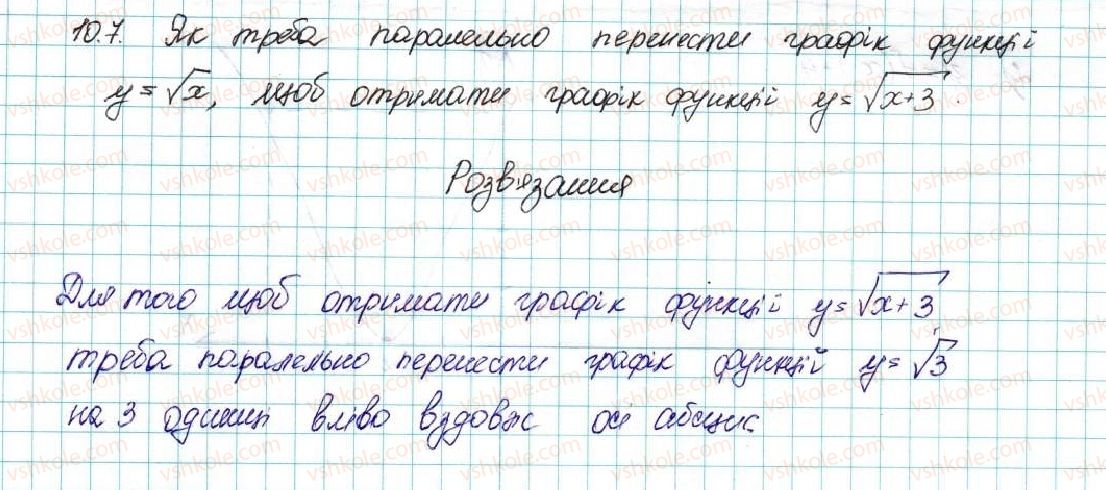 10.7. Як треба паралельно перенести графік функції
y = √x, щоб отримати графік функції y = √x+3.
Розв'язання
Для того щоб отримати графік функцій y = √x+3,
треба паралельно перенести графік функцій y = √3
на 3 одиниці вліво вздовж осі абсцис